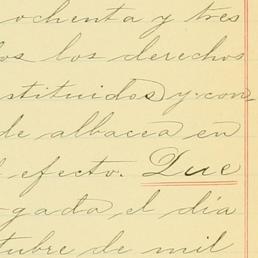 ochenta y tres
los los derechos
stituidos y con-
de albacea en
l efecto. Que
gada el día
tubre de mil